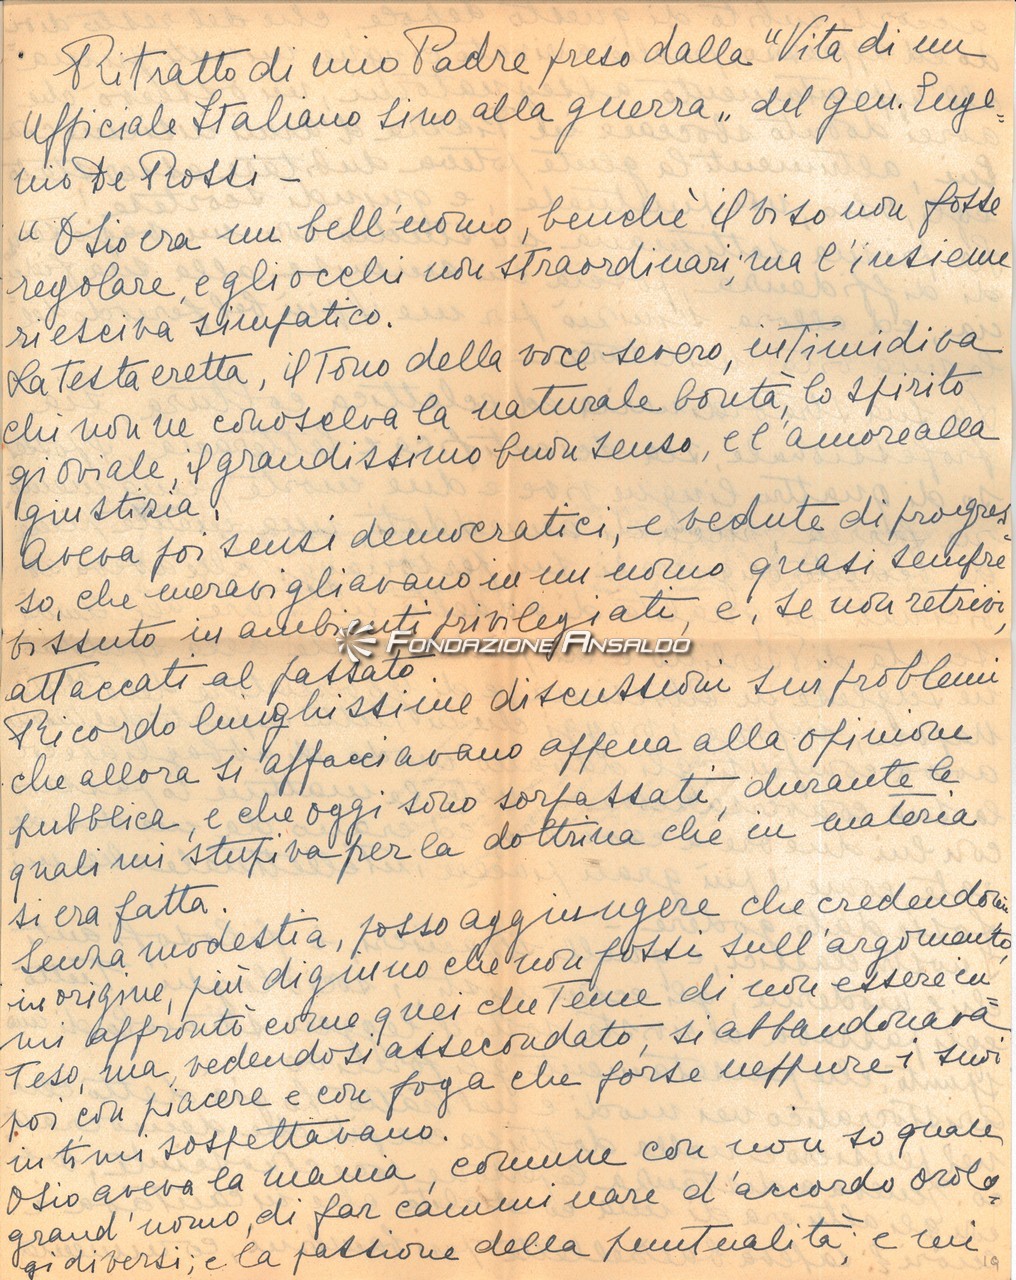 Ritratto di mio Padre preso dalla "Vita di un
Ufficiale Italiano sino alla guerra" del gen. Euge=
nio De Rossi –
"Osio era un bell'uomo, benchè il viso non fosse
regolare, e gli occhi non straordinari, ma l'insieme
riesciva simpatico.
La testa eretta, il tono della voce severo, intimidiva
chi non ne conosceva la naturale bontà, lo spirito
gioviale, il grandissimo buon senso, e l'amore alla
giustizia.
Aveva poi sensi democratici, e vedute di progres=
so, che meravigliavano in un uomo quasi sempre
vissuto in ambienti privilegiati, e, se non retrivi,
attaccati al passato.
FONDAZIONE ANSALDO
Ricordo lunghissime discussioni sui problemi
che allora si affacciavano appena alla opinione
pubblica, e che oggi sono sorpassati, durante le
quali mi stupiva per la dottrina che in materia
si era fatta.
Senza modestia, posso aggiungere che credendomi
in origine, più digiuno che non fossi sull'argomento,
mi affrontò come quei che teme di non essere in=
teso, ma, vedendosi assecondato, si abbandonava
poi con piacere e con foga che forse neppure i suoi
intimi sospettavano.
Osio aveva la mania, comune con non so quale
grand'uomo, di far camminare d'accordo orolo=
gi diversi; e la passione della puntualità; e mi
19